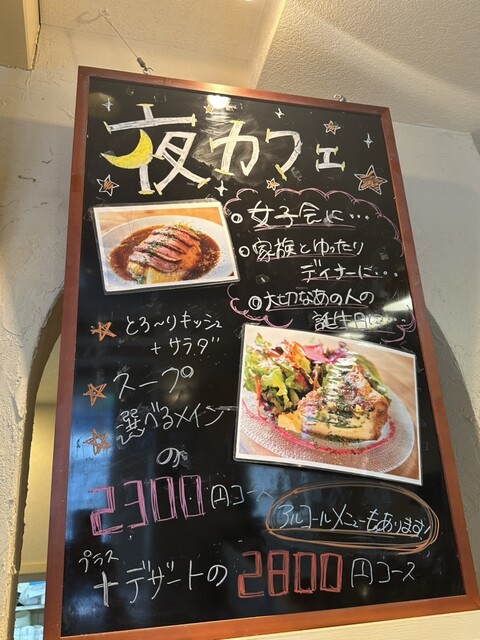 夜カフェ
•女子会に…
•家族とゆったり
ディナーに…
•大切なあの人の
誕生日に…
とろ〜りキッシュ
+サラダ
スープ
選べるメイン
の
2300円コース
アルコールメニューもあります!
プラス
+デザートの2800円コース